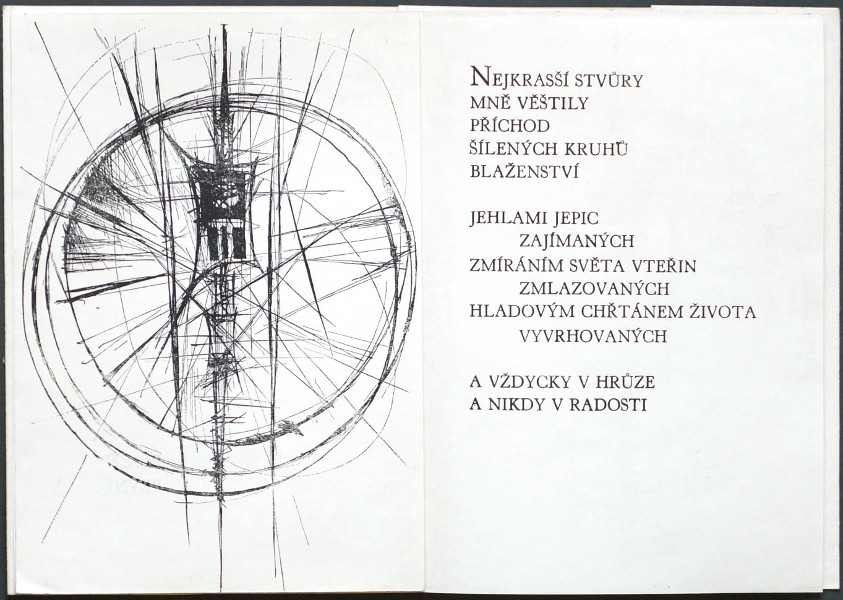 NEJKRASŠÍ STVŮRY
MNĚ VĚŠTILY
PŘÍCHOD
ŠÍLENÝCH KRUHŮ
BLAŽENSTVÍ
JEHLAMI JEPIC
ZAJÍMANÝCH
ZMÍRÁNÍM SVĚTA VTEŘIN
ZMLAZOVANÝCH
HLADOVÝM CHŘTÁNEM ŽIVOTA
VYVRHOVANÝCH
A VŽDYCKY V HRŮZE
A NIKDY V RADOSTI